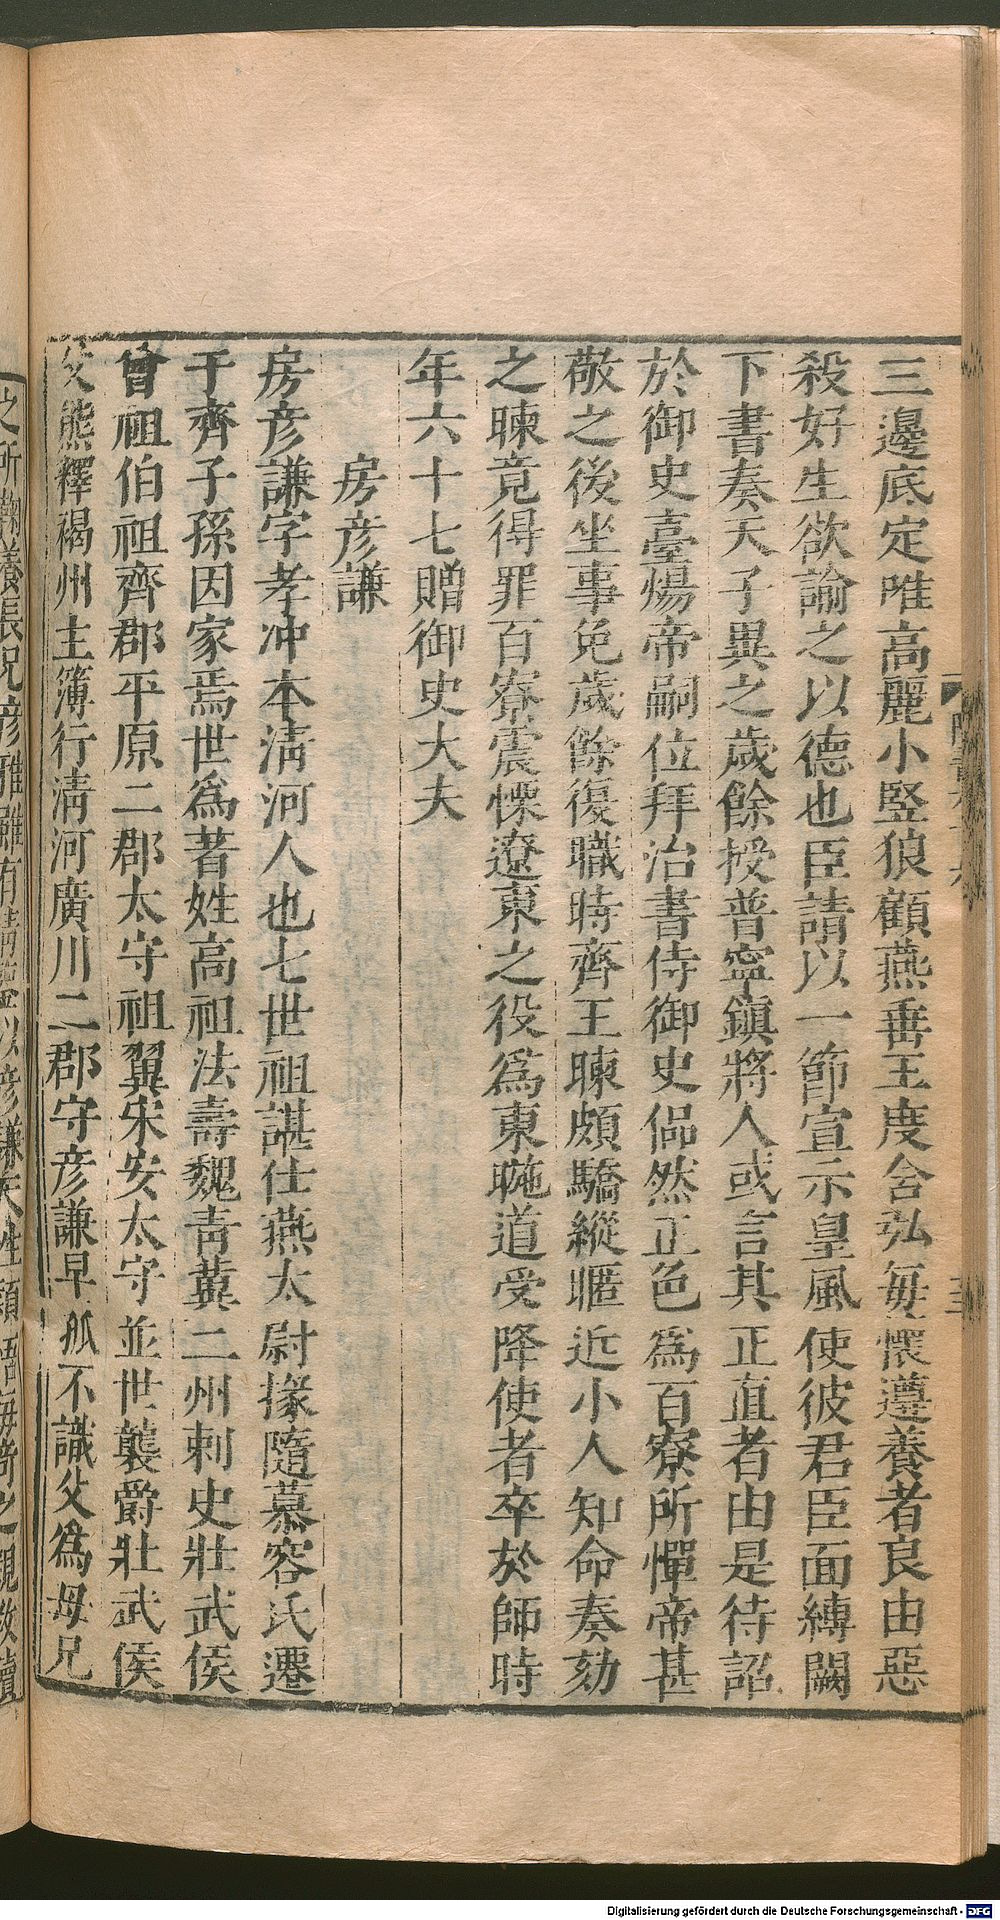 三邊底定唯高麗小竪狼顧燕垂王度含弘每懷遵養者良由惡
殺好生欲諭之以德也臣請以一節宣示皇風使彼君臣面縛闕
下書奏天子異之歲餘授普寧鎮將人或言其正直者由是待詔
於御史臺煬帝嗣位拜治書侍御史偘然正色爲百寮所憚帝甚
敬之後坐事免歲餘復職時齊王暕頗驕縱暱近小人知命奏劾
之暕竟得罪百寮震慄遼東之役爲東暆道受降使者卒於師時
年六十七贈御史大夫
房彦謙
房彦謙字孝冲本淸河人也七世祖諶仕燕太尉掾隨慕容氏遷
于齊子孫因家焉世爲著姓高祖法壽魏靑冀二州刺史壯武侯
曾祖伯祖齊郡平原二郡太守祖翼宋安太守並世襲爵壯武侯
父熊釋褐州主簿行淸河廣川二郡守彦謙早孤不識父爲母兄
之所鞠養長兄彦雅雖有淸鑒以彦謙天性穎悟每奇之親敎讀